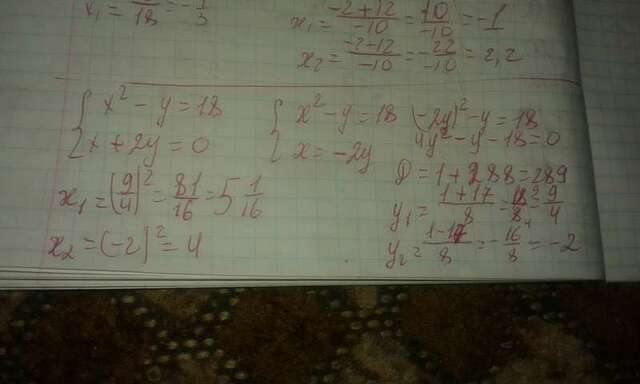 x₁ = /18 = -1/3
x₁ = (-2+12)/-10 = 10/-10 = -1
x₂ = (-2-12)/-10 = -22/-10 = 2,2
{ x² - y = 18
{ x + 2y = 0
{ x² - y = 18
{ x = -2y
(-2y)² - y = 18
4y² - y - 18 = 0
D = 1 + 288 = 289
y₁ = (1+17)/8 = 18/8 = 9/4
y₂ = (1-17)/8 = -16/8 = -2
x₁ = (9/4)² = 81/16 = 5 1/16
x₂ = (-2)² = 4